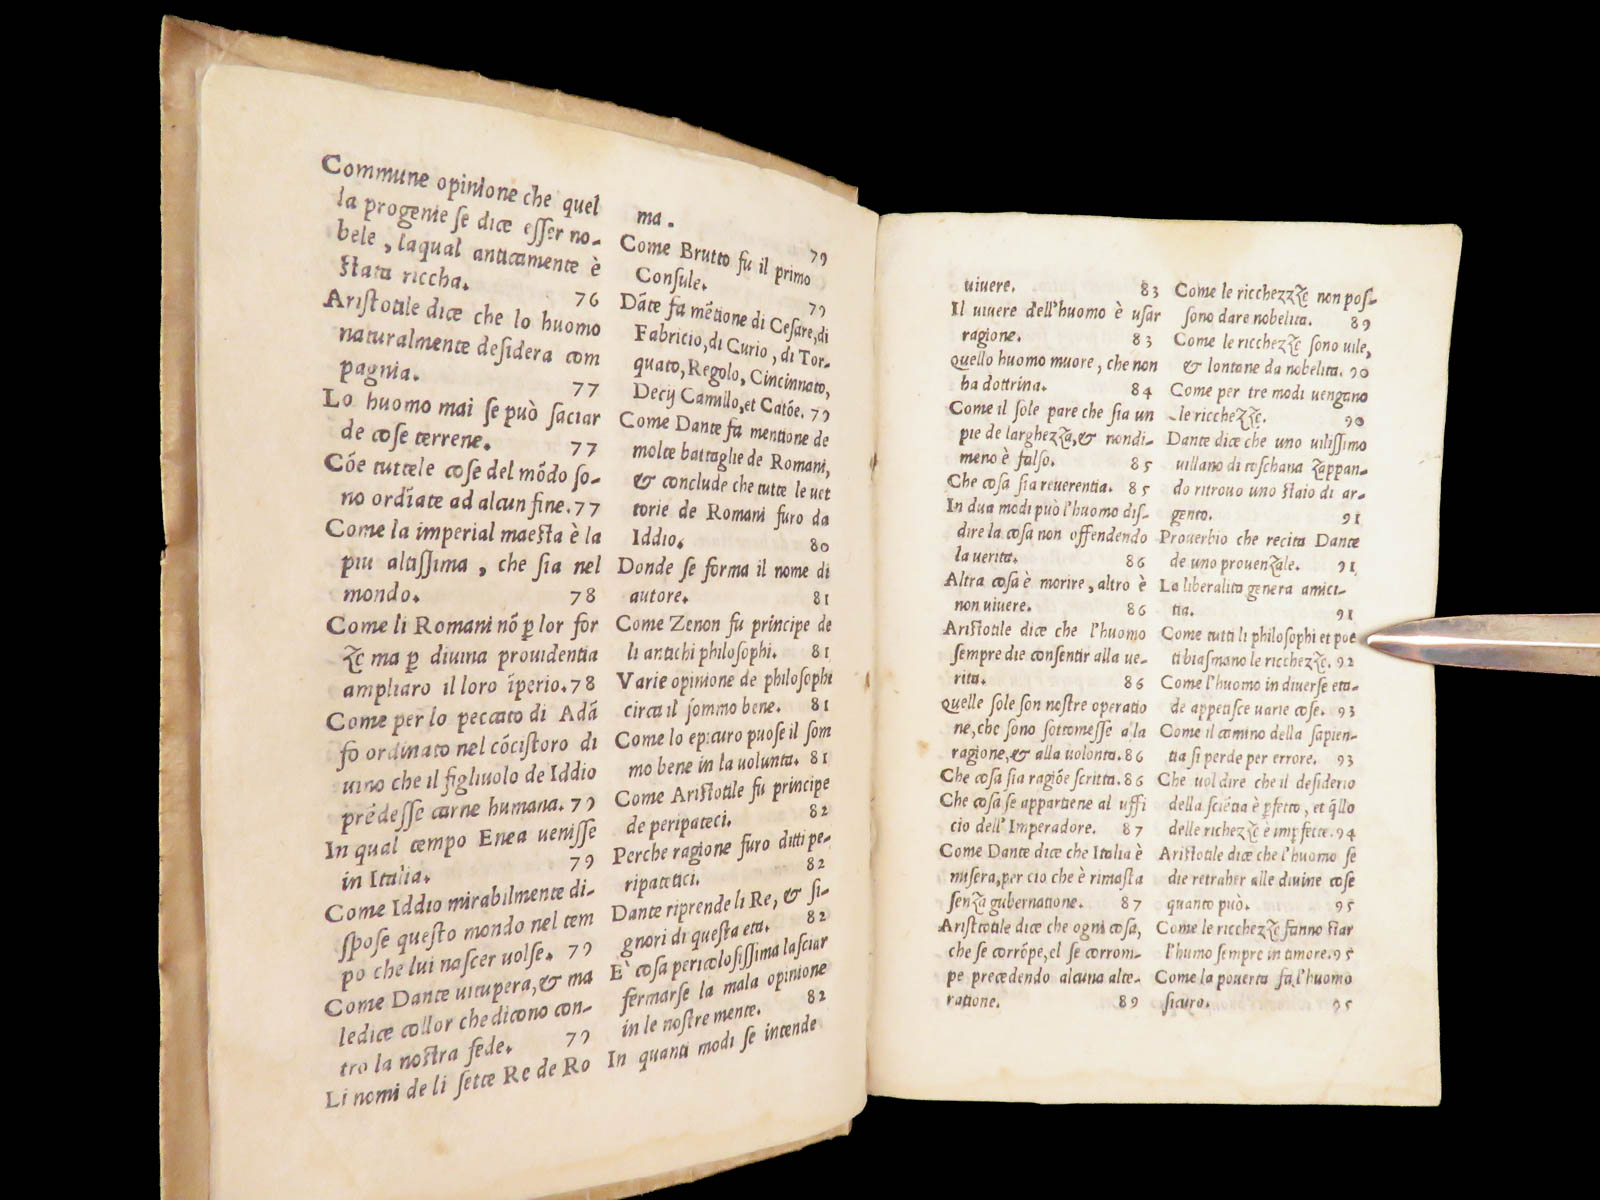 Commune opinione che quel
la progenie ſe dice eſſer no-
bele, laqual anticamente è
ſtata riccha. 76
Ariſtotile dice che lo huomo
naturalmente deſidera com
pagnia. 77
Lo huomo mai ſe può ſaciar
de coſe terrene. 77
Cõe tuttele coſe del mõdo ſo-
no ordĩate ad alcun fine. 77
Come la imperial maeſta è la
piu altiſſima, che ſia nel
mondo. 78
Come li Romani nõ ꝑ lor for
ze ma ꝑ diuina prouidentia
ampliaro il loro ĩperio. 78
Come per lo peccato di Adã
fo ordinato nel cõciſtoro di
uino che il figliuolo de Iddio
prẽdeſſe carne humana. 79
In qual tempo Enea ueniſſe
in Italia. 79
Come Iddio mirabilmente di-
ſpoſe queſto mondo nel tem
po che lui naſcer uolſe. 79
Come Dante uitupera, & ma
ledice collor che dicono con-
tro la noſtra fede. 79
Li nomi de li ſette Re de Ro
ma. 79
Come Brutto fu il primo
Conſule. 79
Dãte fa mẽtione di Ceſare, di
Fabricio, di Curio, di Tor-
quato, Regolo, Cincinnato,
Decij Camillo, et Catõe. 79
Come Dante fa mentione de
molte battaglie de Romani,
& conclude che tutte le uet
torie de Romani furo da
Iddio. 80
Donde ſe forma il nome di
autore. 81
Come Zenon fu principe de
li antichi philoſophi. 81
Varie opinione de philoſophi
circa il ſommo bene. 81
Come lo epicuro puoſe il ſom
mo bene in la uolunta. 81
Come Ariſtotile fu principe
de peripateci. 82
Perche ragione furo ditti pe-
ripatetici. 82
Dante riprende li Re, & ſi-
gnori di queſta eta. 82
E` coſa pericoloſiſſima laſciar
fermarſe la mala opinione
in le noſtre mente. 82
In quanti modi ſe intende
uiuere. 83
Il uiuere dell'huomo è uſar
ragione. 83
Quello huomo muore, che non
ha dottrina. 84
Come il ſole pare che ſia un
pie de larghezza, & nondi-
meno è falſo. 85
Che coſa ſia reuerentia. 85
In dua modi può l'huomo diſ-
dire la coſa non offendendo
la uerita. 86
Altra coſa è morire, altro è
non uiuere. 86
Ariſtotile dice che l'huomo
ſempre die conſentir alla ue-
rita. 86
Quelle ſole ſon noſtre operatio
ne, che ſono ſottomeſſe a la
ragione, & alla uolonta. 86
Che coſa ſia ragiõe ſcritta. 86
Che coſa ſe appartiene al uffi
cio dell'Imperadore. 87
Come Dante dice che Italia è
miſera, per cio che è rimaſta
ſenza gubernatione. 87
Ariſtotile dice che ogni coſa,
che ſe corrõpe, el ſe corrom-
pe precedendo alcuna alte-
ratione. 89
Come le ricchezze non poſ-
ſono dare nobelita. 89
Come le ricchezze ſono uile,
& lontane da nobelita. 90
Come per tre modi uengano
le ricchezze. 90
Dante dice che uno uiliſſimo
uillano di toſchana zappan-
do ritrouo uno ſtaio di ar-
gento. 91
Prouerbio che recita Dante
de uno prouenzale. 91
La liberalita genera amici-
tia. 91
Come tutti li philoſophi et poe
ti biaſmano le ricchezze. 92
Come l'huomo in diuerſe eta-
de appetiſce uarie coſe. 93
Come il camino della ſapien-
tia ſi perde per errore. 93
Che uol dire che il deſiderio
della ſciẽtia è ꝑfetto, et q̃llo
delle richezze è imꝑfette. 94
Ariſtotile dice che l'huomo ſe
die retraher alle diuine coſe
quanto può. 95
Come le ricchezze fanno ſtar
l'humo ſempre in timore. 95
Come la pouerta fa l'huomo
ſicuro. 95